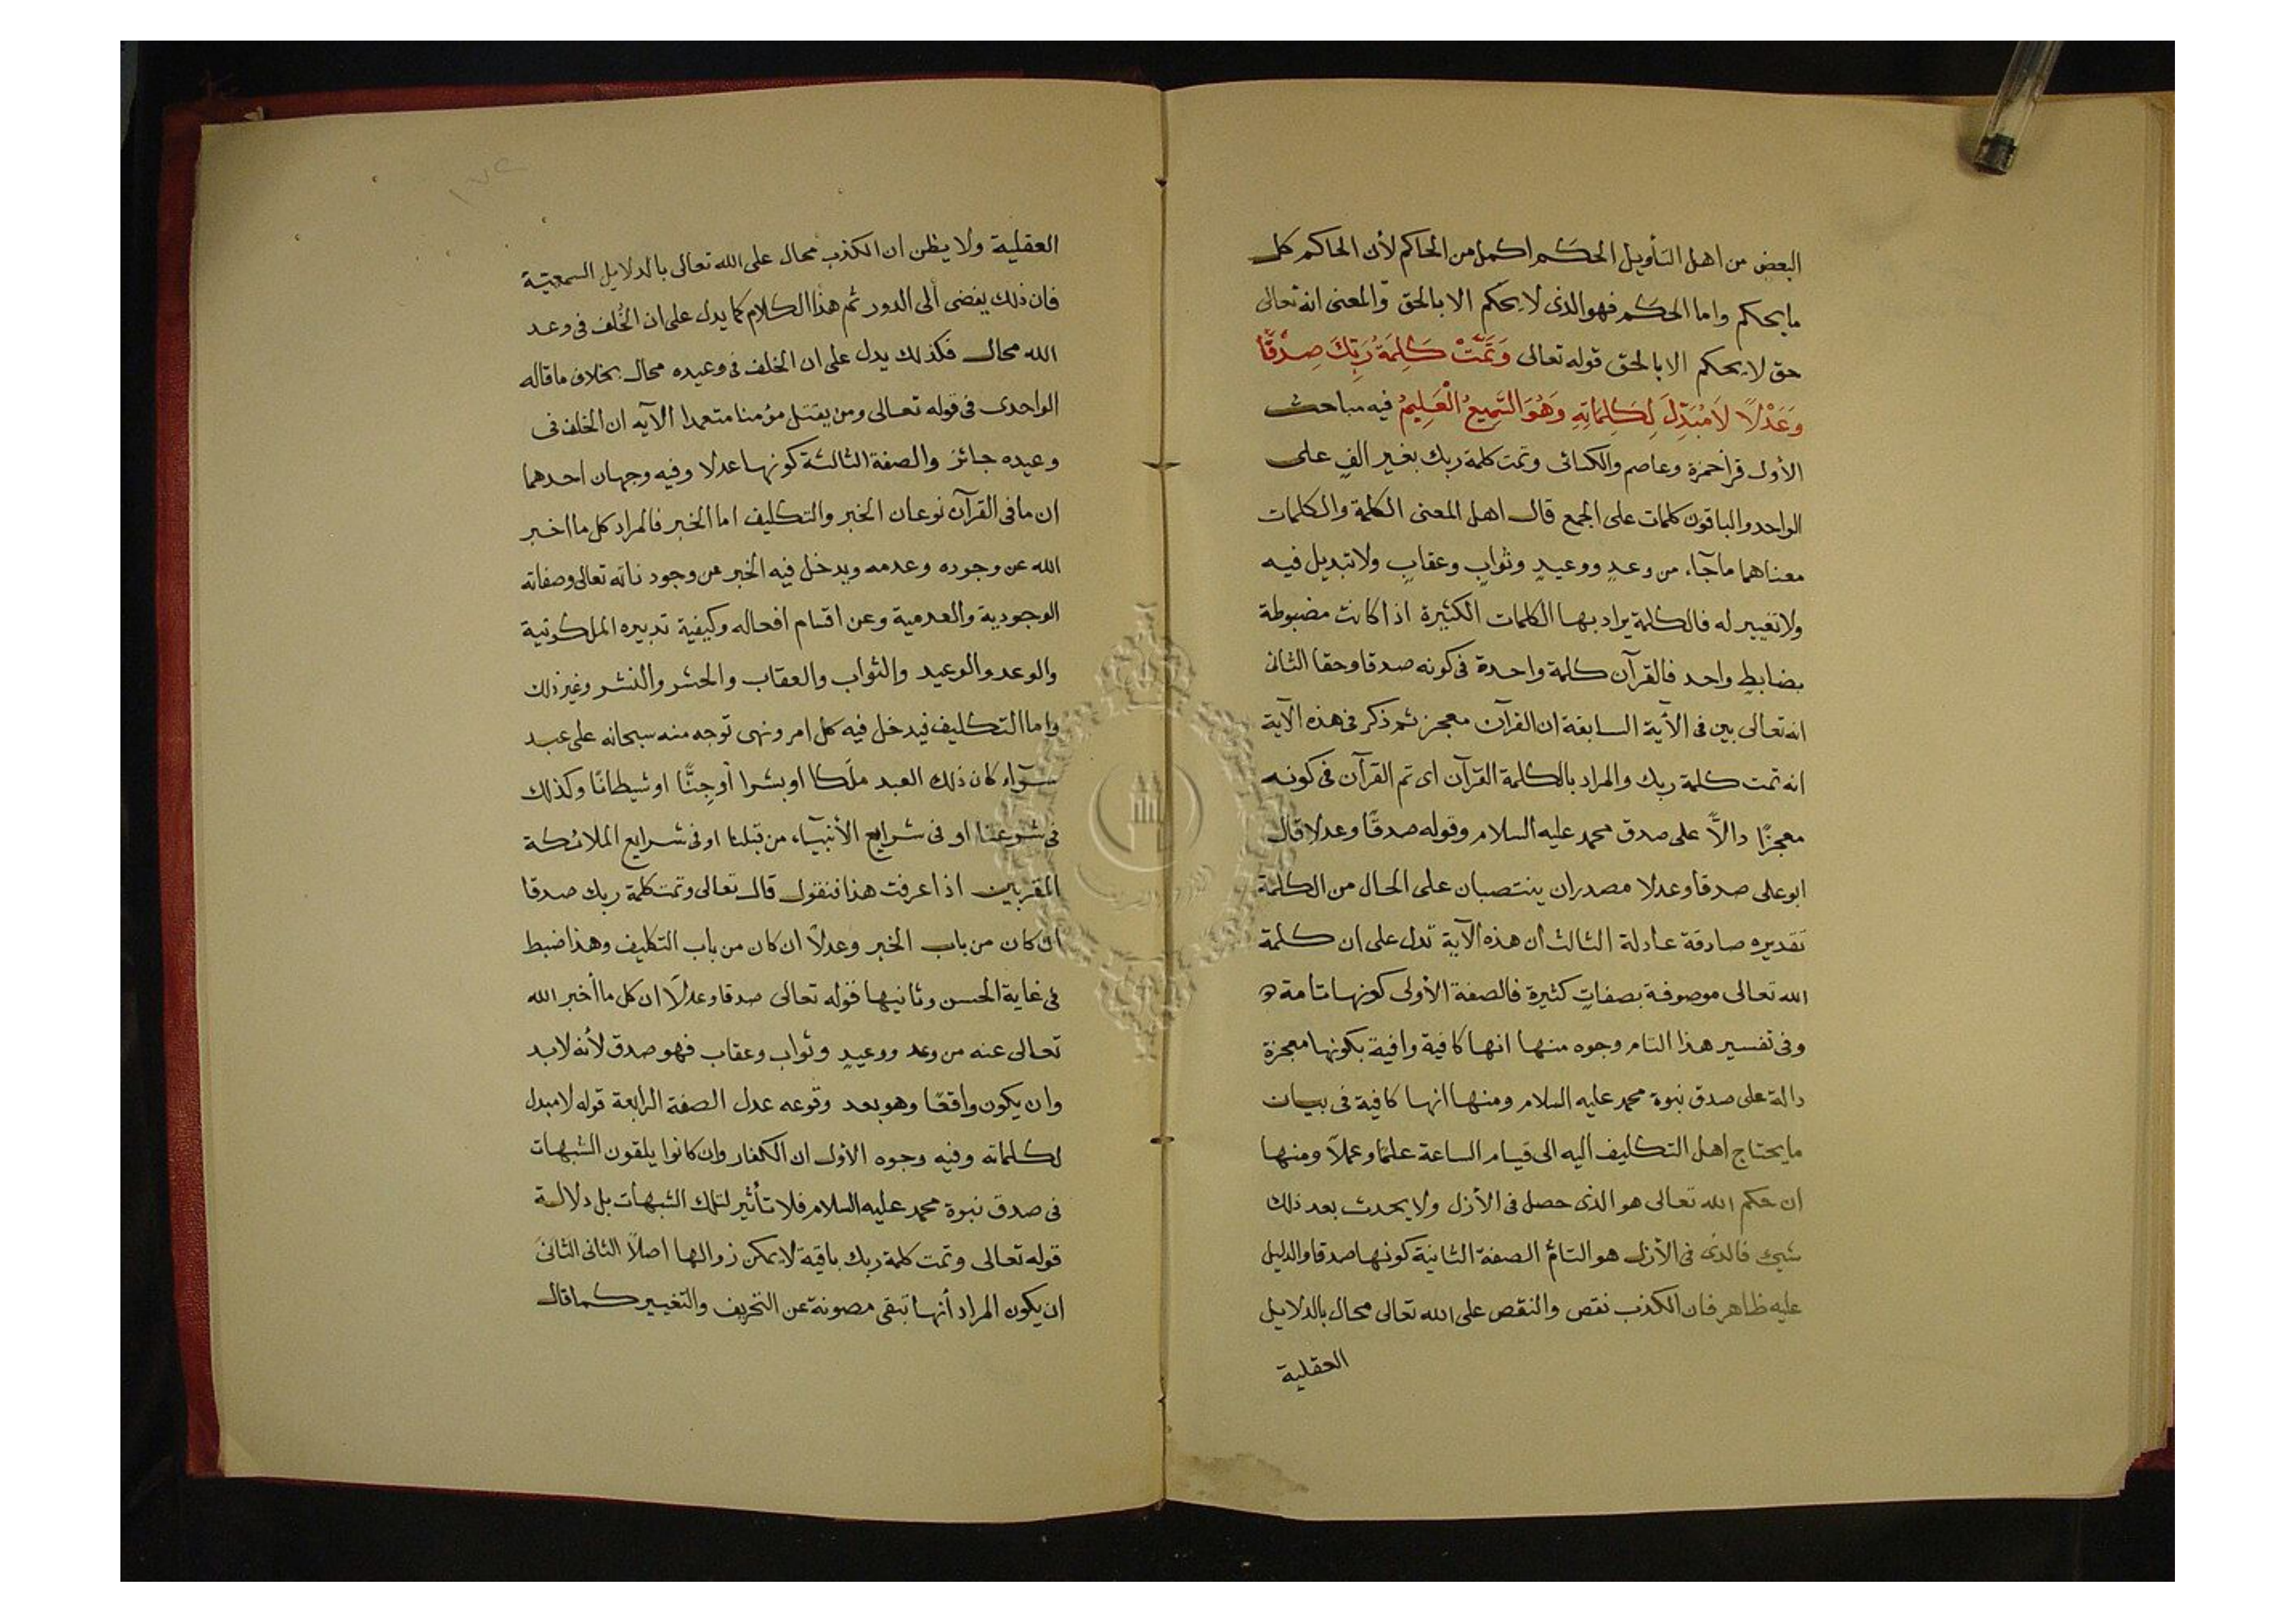 البعض من اهل التأويل الحكم اكمل من الحاكم لأن الحاكم كل
ما يحكم واما الحكم فهو الذى لا يحكم الا بالحق والمعنى انه تعالى
حق لا يحكم الا بالحق قوله تعالى وَتَمَّتْ كَلِمَةُ رَبِّكَ صِدْقًا
وَعَدْلًا لَا مُبَدِّلَ لِكَلِمَاتِهِ وَهُوَ السَّمِيعُ الْعَلِيمُ فيه مباحث
الأول قرأ حمزة وعاصم والكسائى وتمت كلمة ربك بغير الفٍ على
الواحد والباقون كلمات على الجمع قال اهل المعنى الكلمة والكلمات
معناهما ما جآء من وعدٍ ووعيدٍ وثوابٍ وعقابٍ ولا تبديل فيه
ولا تغيير له فالكلمة يراد بها الكلمات الكثيرة اذا كانت مضبوطة
بضابطٍ واحد فالقرآن كلمة واحدة فى كونه صدقا وحقا الثانى
انه تعالى بين فى الآية السابقة ان القرآن معجز ثم ذكر فى هذه الآية
انه تمت كلمة ربك والمراد بالكلمة القرآن اى تم القرآن فى كونه
معجزًا دالًّا على صدق محمد عليه السلام وقوله صدقًا وعدلا قال
ابو على صدقا وعدلا مصدران ينتصبان على الحال من الكلمة
تقديره صادقة عادلة الثالث ان هذه الآية تدل على ان كلمة
الله تعالى موصوفة بصفاتٍ كثيرة فالصفة الأولى كونها تامة
وفى تفسير هذا التام وجوه منها انها كافية وافية بكونها معجزة
دالة على صدق نبوة محمد عليه السلام ومنها انها كافية فى بيان
ما يحتاج اهل التكليف اليه الى قيام الساعة علمًا وعملًا ومنها
ان حكم الله تعالى هو الذى حصل فى الأزل ولا يحدث بعد ذلك
شىء فالذى فى الأزل هو التام الصفة الثانية كونها صدقا والدليل
عليه ظاهر فان الكذب نقص والنقص على الله تعالى محال بالدلايل
العقلية
العقلية ولا يظن ان الكذب محال على الله تعالى بالدلايل السمعية
فان ذلك يفضى ألى الدور ثم هذا الكلام كما يدل على ان الخُلف فى وعد
الله محال فكذلك يدل على ان الخلف فى وعيده محال بخلاف ما قاله
الواحدى فى قوله تعالى ومن يقتل مؤمنا متعمدا الآيه ان الخلف فى
وعيده جائز والصفة الثالثة كونها عدلا وفيه وجهان احدهما
ان ما فى القرآن نوعان الخبر والتكليف اما الخبر فالمراد كل ما اخبر
الله عن وجوده وعدمه ويدخل فيه الخبر من وجود ذاته تعالى وصفاته
الوجودية والعدمية وعن اقسام افعاله وكيفية تدبيره الملكوتية
والوعد والوعيد والثواب والعقاب والحشر والنشر وغير ذلك
واما التكليف فيدخل فيه كل امر ونهى توجه منه سبحانه على عبد
سوآء كان ذلك العبد ملَكا او بشرا أو جِنًّا او شيطانًا وكذلك
فى شرعنا او فى شرايع الأنبيآء من قبلنا او فى شرايع الملائكة
المقربين اذا عرفت هذا فنقول قال تعالى وتمت كلمة ربك صدقا
ان كان من باب الخبر وعدلًا ان كان من باب التكليف وهذا ضبط
فى غاية الحسن وثانيها قوله تعالى صدقا وعدلًا ان كل ما أخبر الله
تعالى عنه من وعد ووعيدٍ وثواب وعقاب فهو صدق لأنه لا بد
وان يكون واقعًا وهو بعد وقوعه عدل الصفة الرابعة قوله لا مبدل
لكلماته وفيه وجوه الأول ان الكفار وان كانوا يلقون الشبهات
فى صدق نبوة محمد عليه السلام فلا تأثير لتلك الشبهات بل دلالة
قوله تعالى وتمت كلمة ربك باقية لا يمكن زوالها اصلًا الثانى الثانى
ان يكون المراد أنها تبقى مصونة عن التحريف والتغيير كما قال